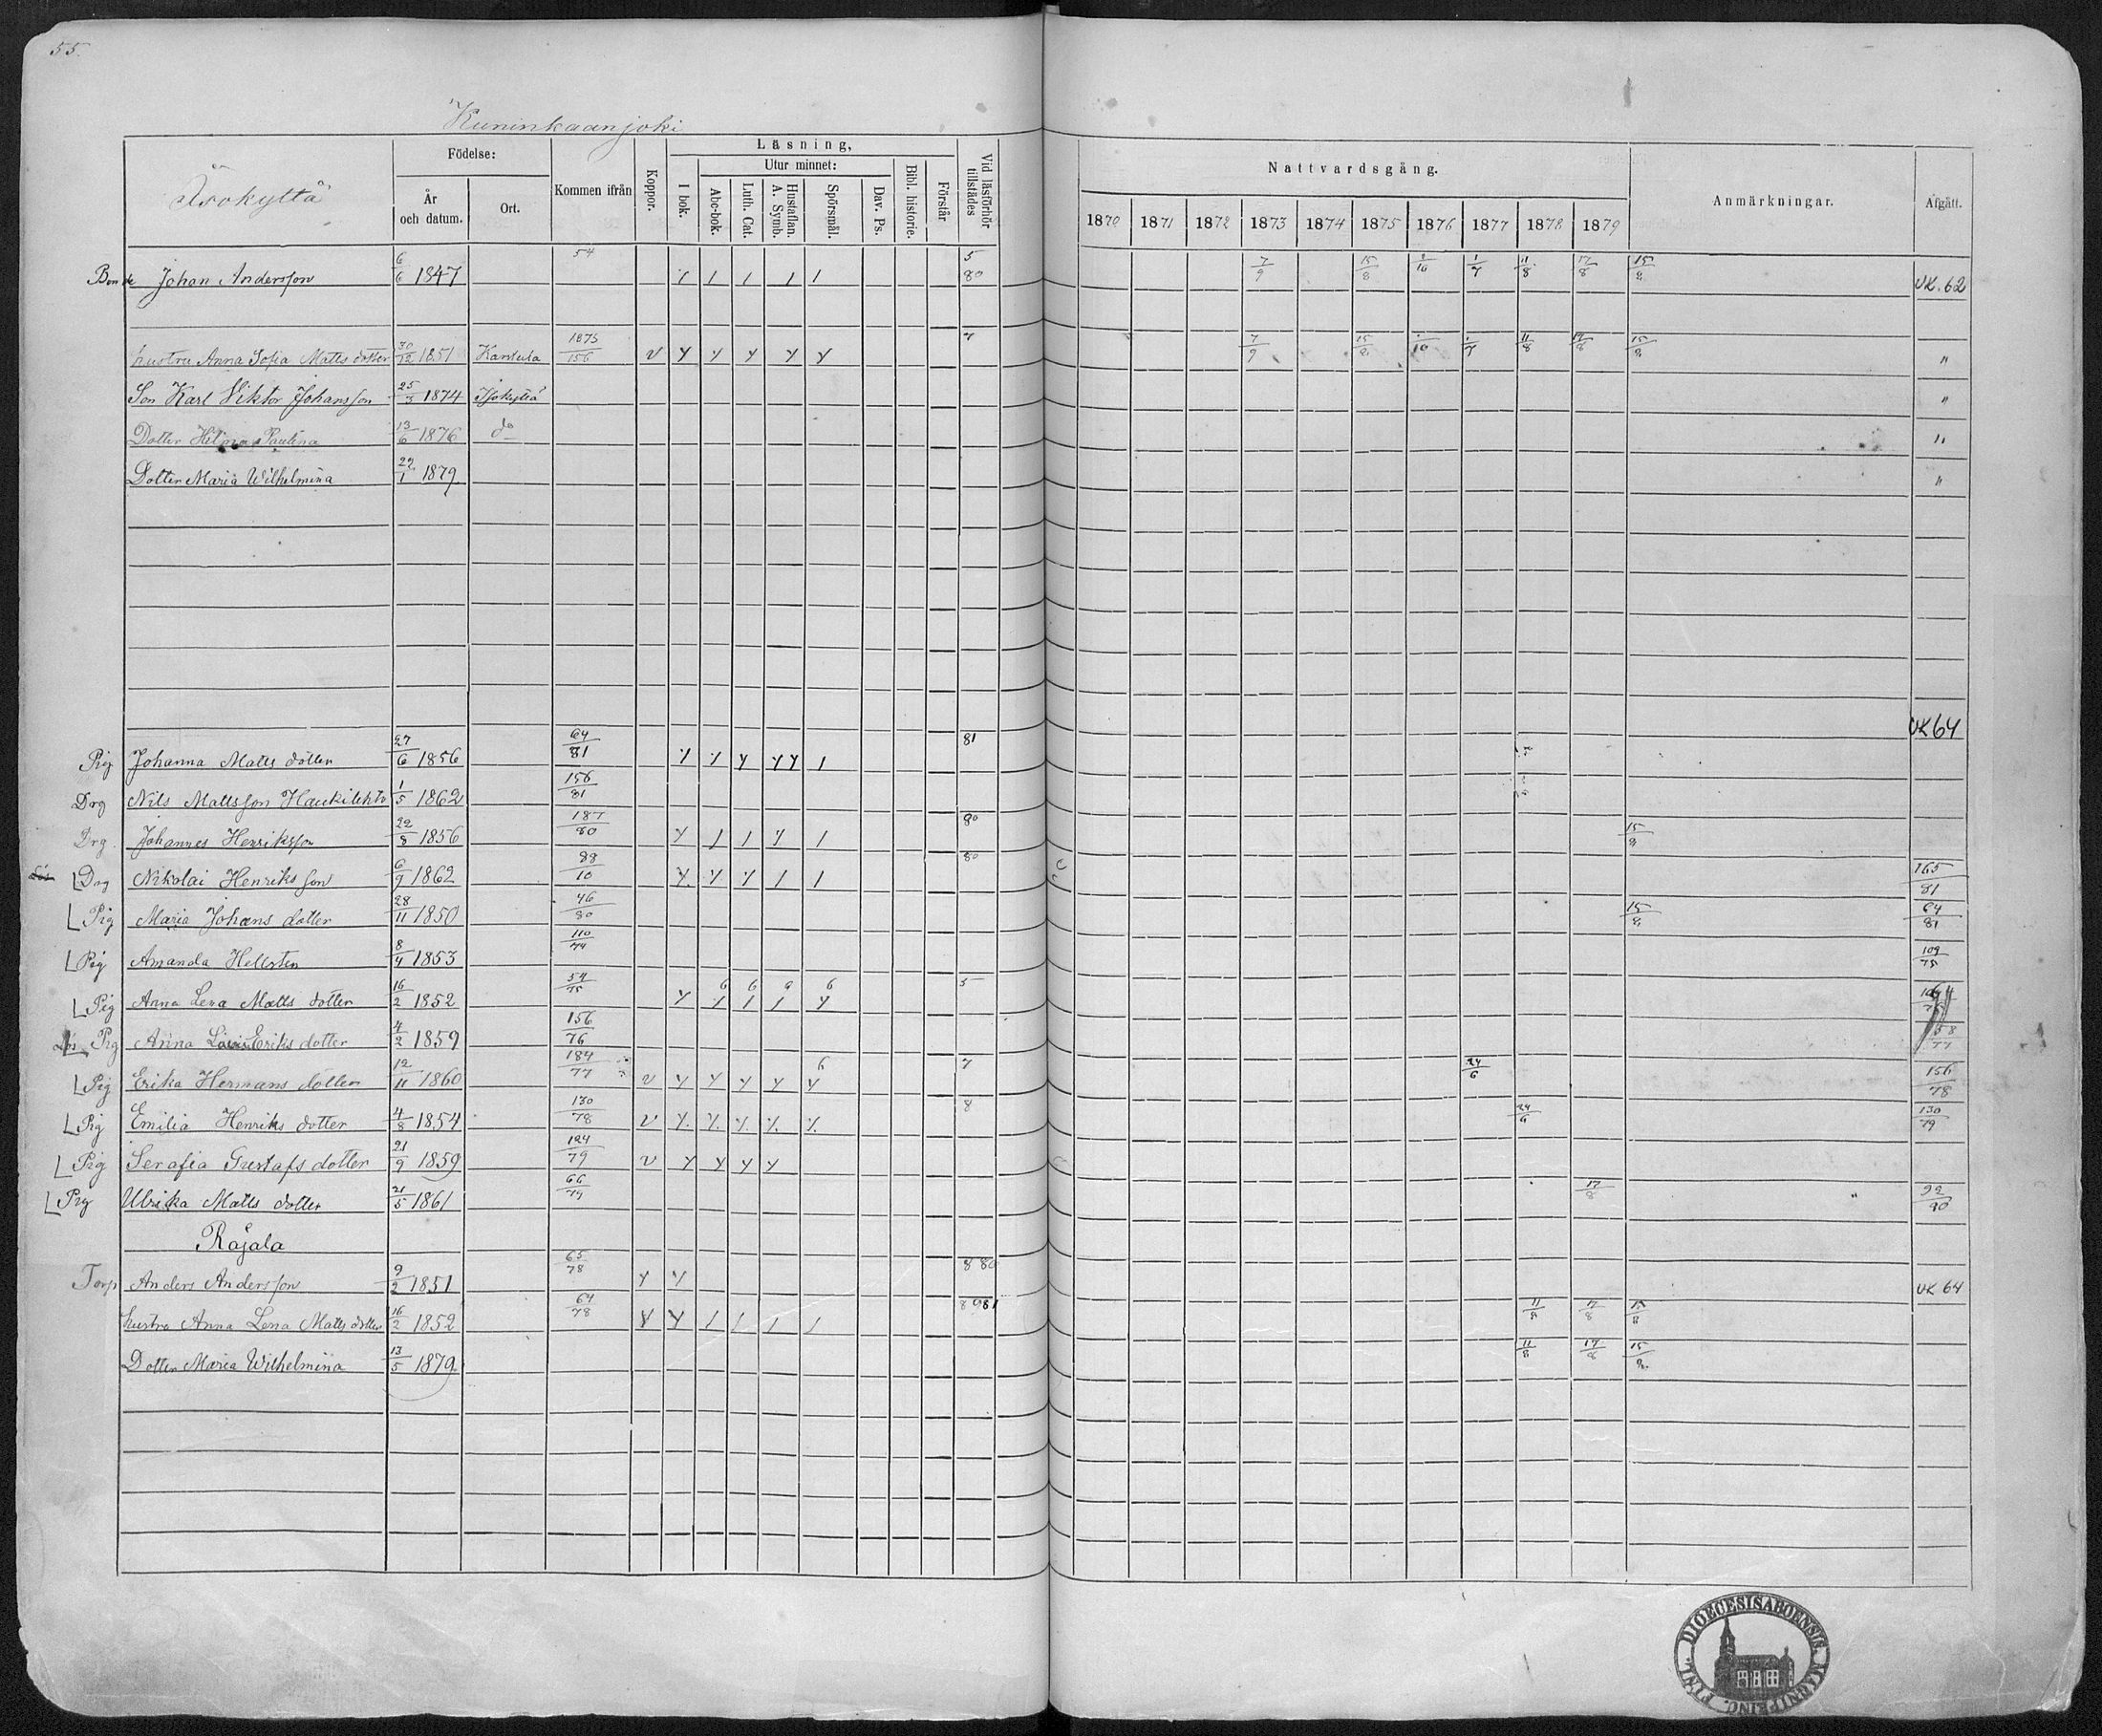 55.
Kuninkaanjoki
Isokyltä
Födelse:
År och datum.
Ort.
Kommen ifrån
Koppor.
Läsning,
I bok.
Utur minnet:
Abc-bok.
Luth. Cat.
Hustaflan. A. Symb.
Spörsmål.
Dav. Ps.
Bibl. historie.
Förstår
Vid läsförhör tillstädes
Nattvardsgång.
1870 1871 1872 1873 1874 1875 1876 1877 1878 1879
Anmärkningar.
Afgått.
Bonde Johan Andersson 6/6 1847 54 5 80 7/9 15/8 /10 1/7 11/8 17/8 15/8 UK. 62
hustru Anna Sofia Matts dotter 30/12 1851 Kantula 1873/156 v 7 7/9 15/8 /10 /7 11/8 17/8 15/8 "
Son Karl Viktor Johansson 25/3 1874 Isokyltä "
Dotter Hilma Paulina 13/6 1876 do "
Dotter Maria Wilhelmina 22/1 1879 "
UK 64
Pig Johanna Matts dotter 27/6 1856 64/81 81
Drg Nils Mattsson Haukilehto 1/5 1862 156/81
Drg. Johannes Henriksson 22/8 1856 187/80 80 15/8
Drg Nikolai Henriksson 6/9 1862 88/10 80 165/81
Pig Maria Johans dotter 28/11 1850 46/80 15/8 64/81
Pig Amanda Hellsten 8/4 1853 110/74 109/75
Pig Anna Lena Matts dotter 16/2 1852 54/75 6 6 9 6 5
Pig Anna Eriks dotter 4/2 1859 156/76 58/77
Pig Erika Hermans dotter 12/11 1860 184/77 v 6 7 24/6 156/78
Pig Emilia Henriks dotter 4/8 1854 130/78 v 8 24/6 130/79
Pig Serafia Gustafs dotter 21/9 1859 124/79 v
Pig Ulrika Matts dotter 21/5 1861 66/79 17/8 92/80
Rajala
Torp Anders Andersson 9/2 1851 65/78 8 80 UK 64
hustru Anna Lena Matts dotter 16/2 1852 64/78 8 81 11/8 17/8 15/8
Dotter Maria Wilhelmina 13/5 1879 11/8 17/8 15/8
DIOECESIS ABOENSIS. MAGNI PRINC. FINL.